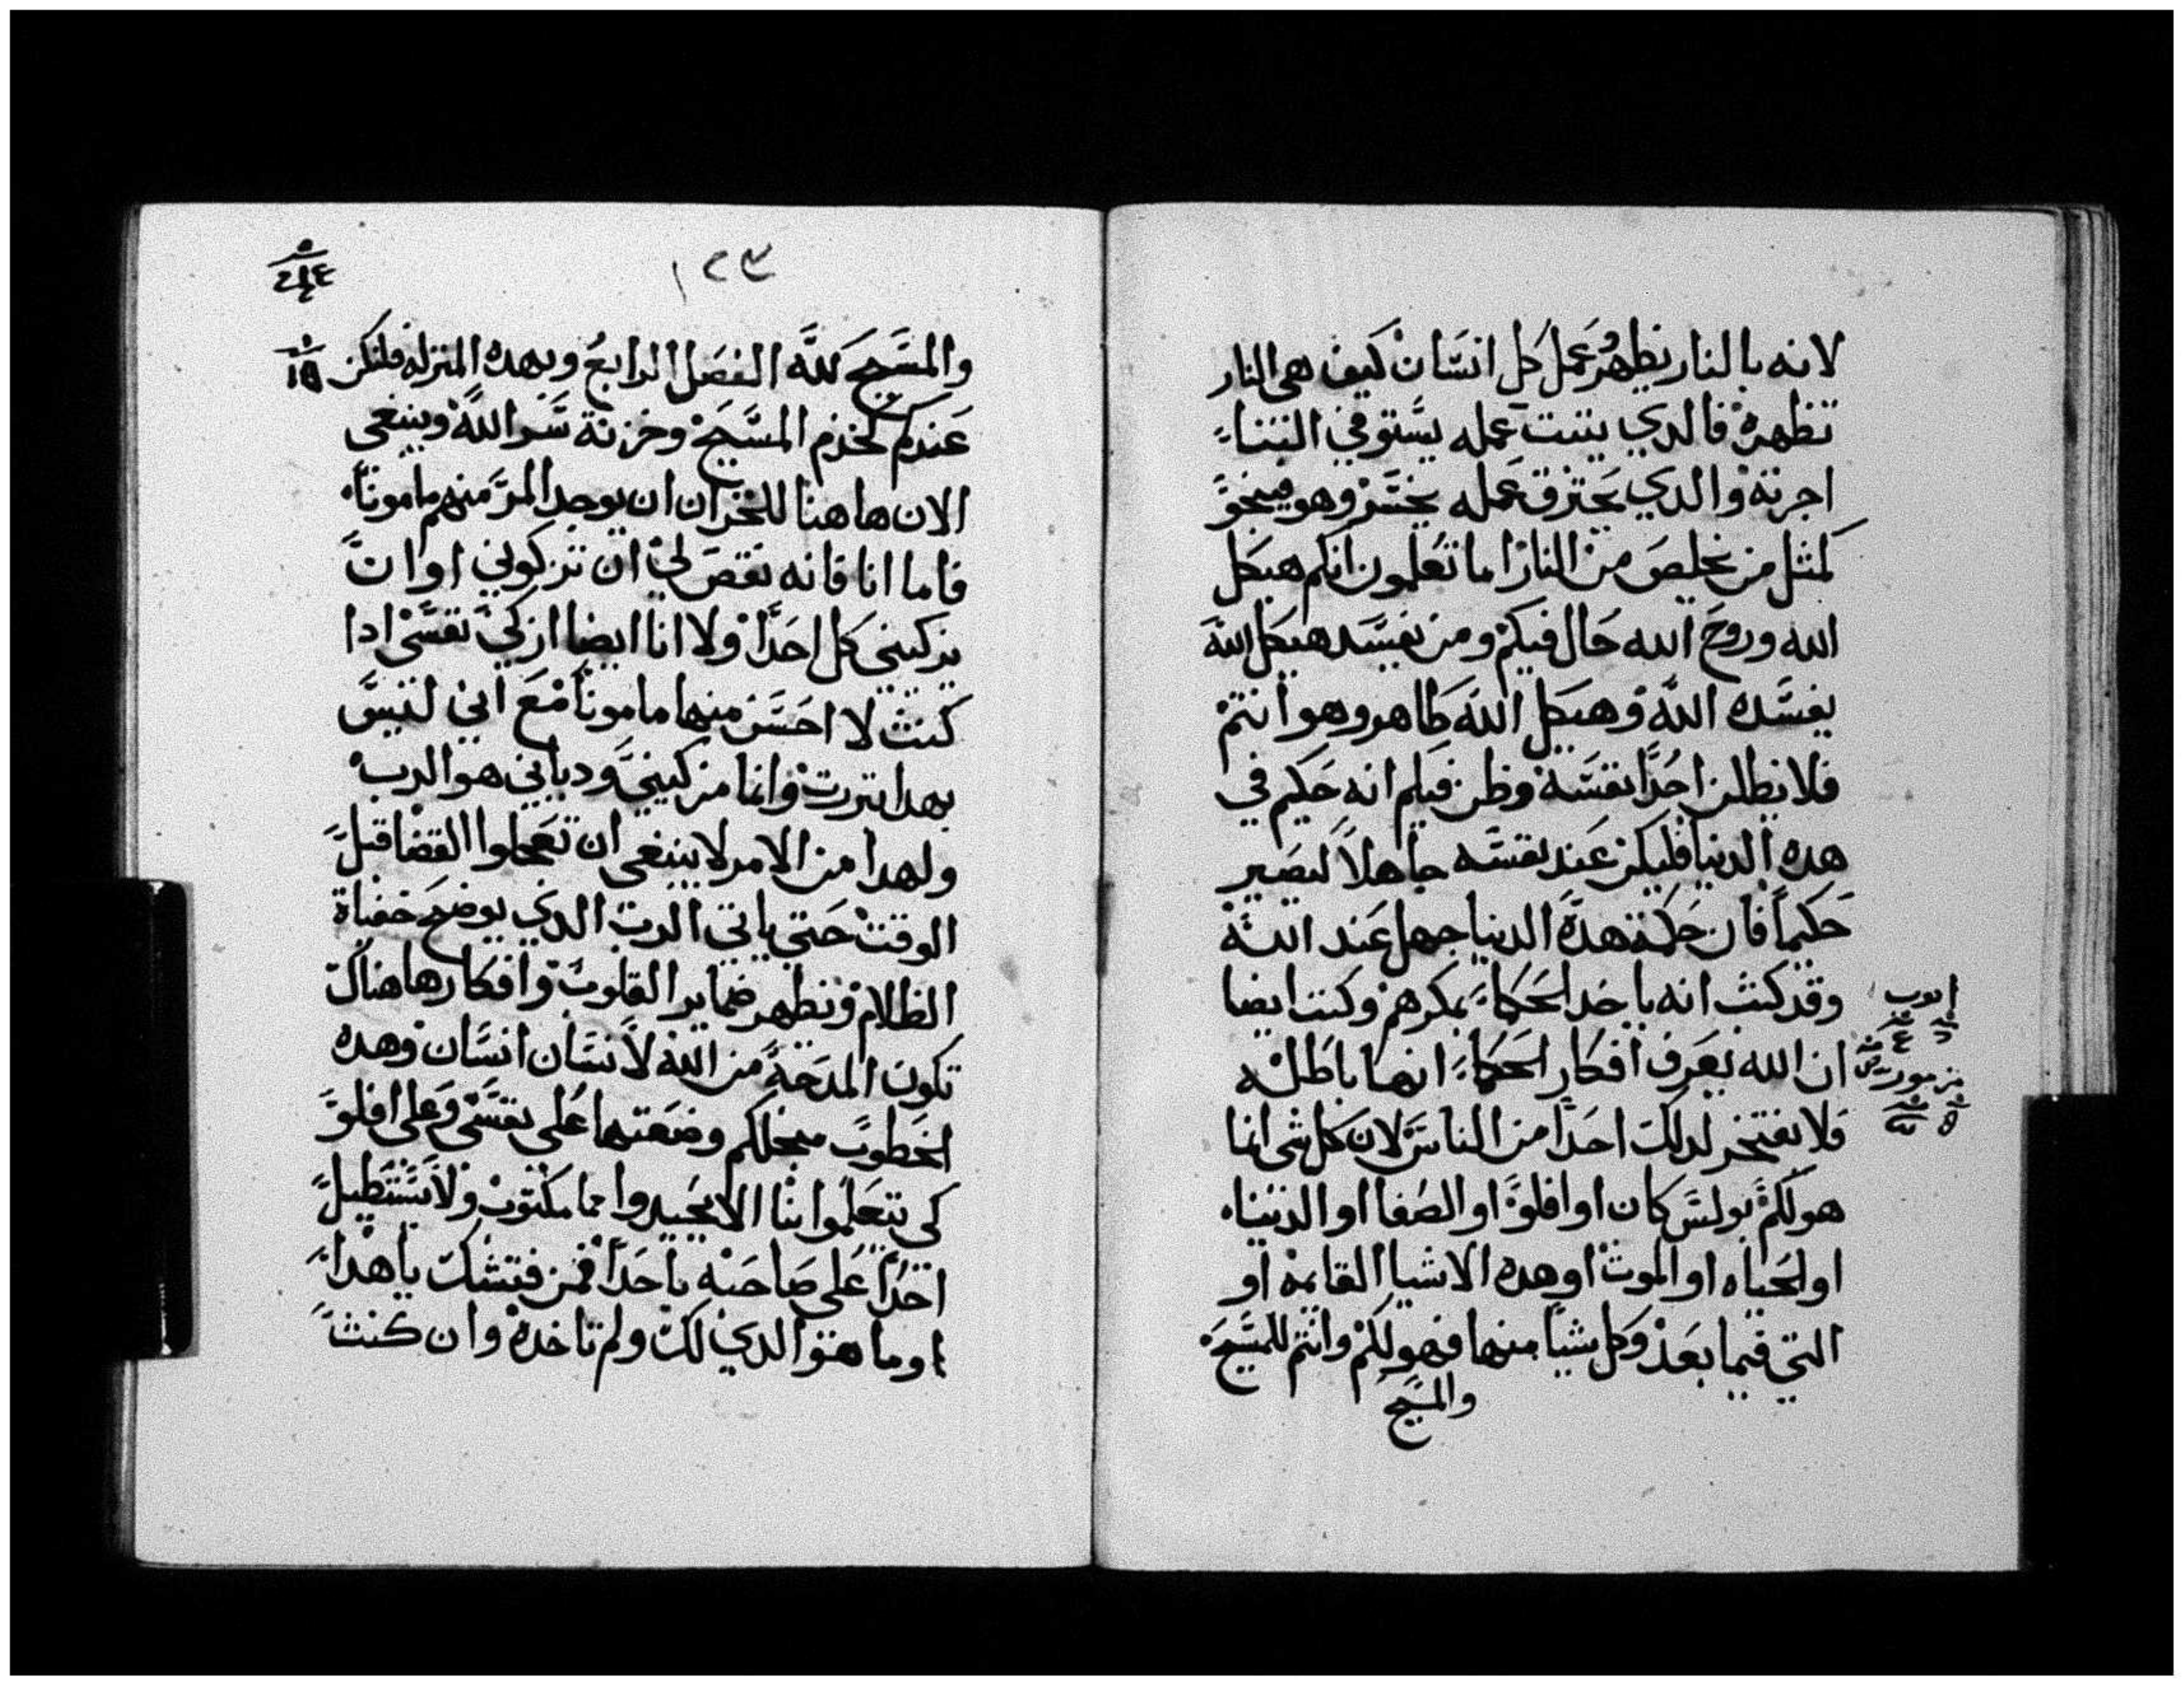 لانه بالنار يظهر عمل كل انسان كيف هي النار
تظهره فالدي يثبت عمله يستوفي البناء
اجرته والدي يحترق عمله يخسر وهو فينجو
كمثل من يخلص من النار اما تعلمون انكم هيكل
الله وروح الله حال فيكم ومن يفسد هيكل الله
يفسده الله وهيكل الله طاهر وهو انتم
فلا يظلن احدا نفسه وظن فيكم انه حكيم في
هده الدنيا فليكن عند نفسه جاهلا ليصير
حكيما فان حكمة هده الدنيا جهل عند الله
وقد كتب انه ياخد الحكماء بمكرهم وكتب ايضا
ان الله يعرف افكار الحكماء انها باطله
فلا يفتخر لدلك احدا من الناس لان كل شى انما
هو لكم بولس كان او افلو او الصفا او الدنيا
او الحياه او الموت او هده الاشيا القايمه او
التي فيما بعد وكل شيا منها فهو لكم وانتم للمسيح
والمسيح
ايوب
مزمور
١٢٣
والمسيح لله الفصل الرابع وبهده المنزله فلنكن
عندكم كخدم المسيح وخزنة سر الله وينبغي
الان هاهنا للخزان ان يوجد المر منهم مامونا
فاما انا فانه نقص لي ان تزكوني او ان
يزكيني كل احدا ولا انا ايضا ازكي نفسي ادا
كنت لا احسن منها مامونا مع اني ليس
بهدا تبررت وانما مزكيني ودياني هو الرب
ولهدا من الامر لا ينبغي ان تعجلوا القضا قبل
الوقت حتى ياتي الرب الدي يوضح خفياة
الظلام ويظهر ضماير القلوب وافكارها هناك
تكون المدحة من الله لانسان انسان وهده
الخطوب من اجلكم وضعتها على نفسي وعلى افلو
كي تتعلموا بنا الا يحيدوا مما مكتوب ولا يستطيل
احدا على صاحبه باحدا فمن فتشك يا هدا
اوما هو الدي لك ولم تاخده وان كنت